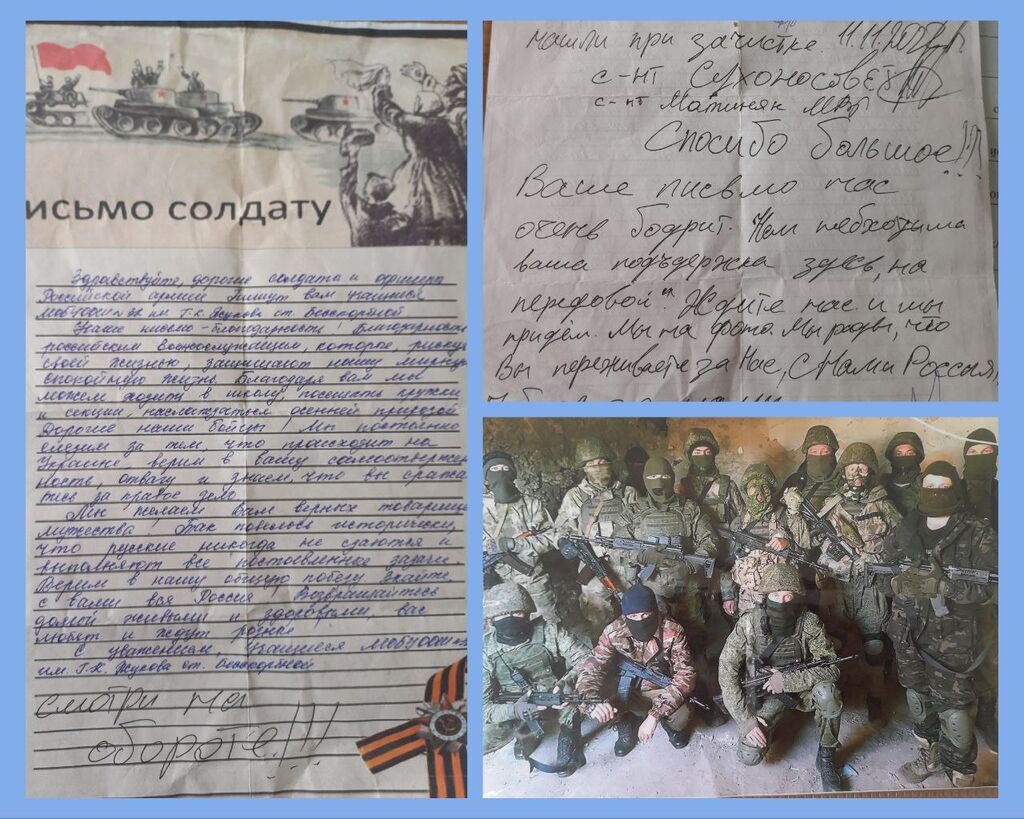 исьмо солдату
Здравствуйте, дорогие солдата и офицера
Российской армии Пишут вам учащиеся
им Г.К Жукова ст. Бесскорбной
Наше письмо - благодарность! Благодарност
российским военнослужащим, которое риску
своей жизнью, защищают нашу мирную
спокойную жизнь. Благодаря вам мы
можем ходить в школу, посещать кружки
и секции наслаждаться осенней природой
Дорогие наши бойцы! Мы постоянно
следим за тем, что происходит на
Украине верим в вашу самоотвержен
ность, отвагу и знаем, что вы сража
тесь за правое дело
Мы желаем Вам верных товарище
мужества Так повелось исторически,
что русские никогда не сдаются и
выполняют все поставленные задачи.
Верим в нашу общую победу. Знайте,
с вами вся Россия Возвращайтесь
домой живыми и здоровыми, вас
любят и ждут родные
С уважением, Учащиеся
им. Г.К. Жукова ст. Бесскорбной
смотри на
обороте!!!
нашли при зачистке 11.11.2022г.
с-нт
с-нт Матинян
Спосибо большое!!!
Ваше письмо нас
очень бодрит. Нам небходима
ваша подъдержка здесь, на
передовой". Ждите нас и мы
придём. Мы на фото. Мы рады, что
Вы переживаете за Нас, С Нами Россия,